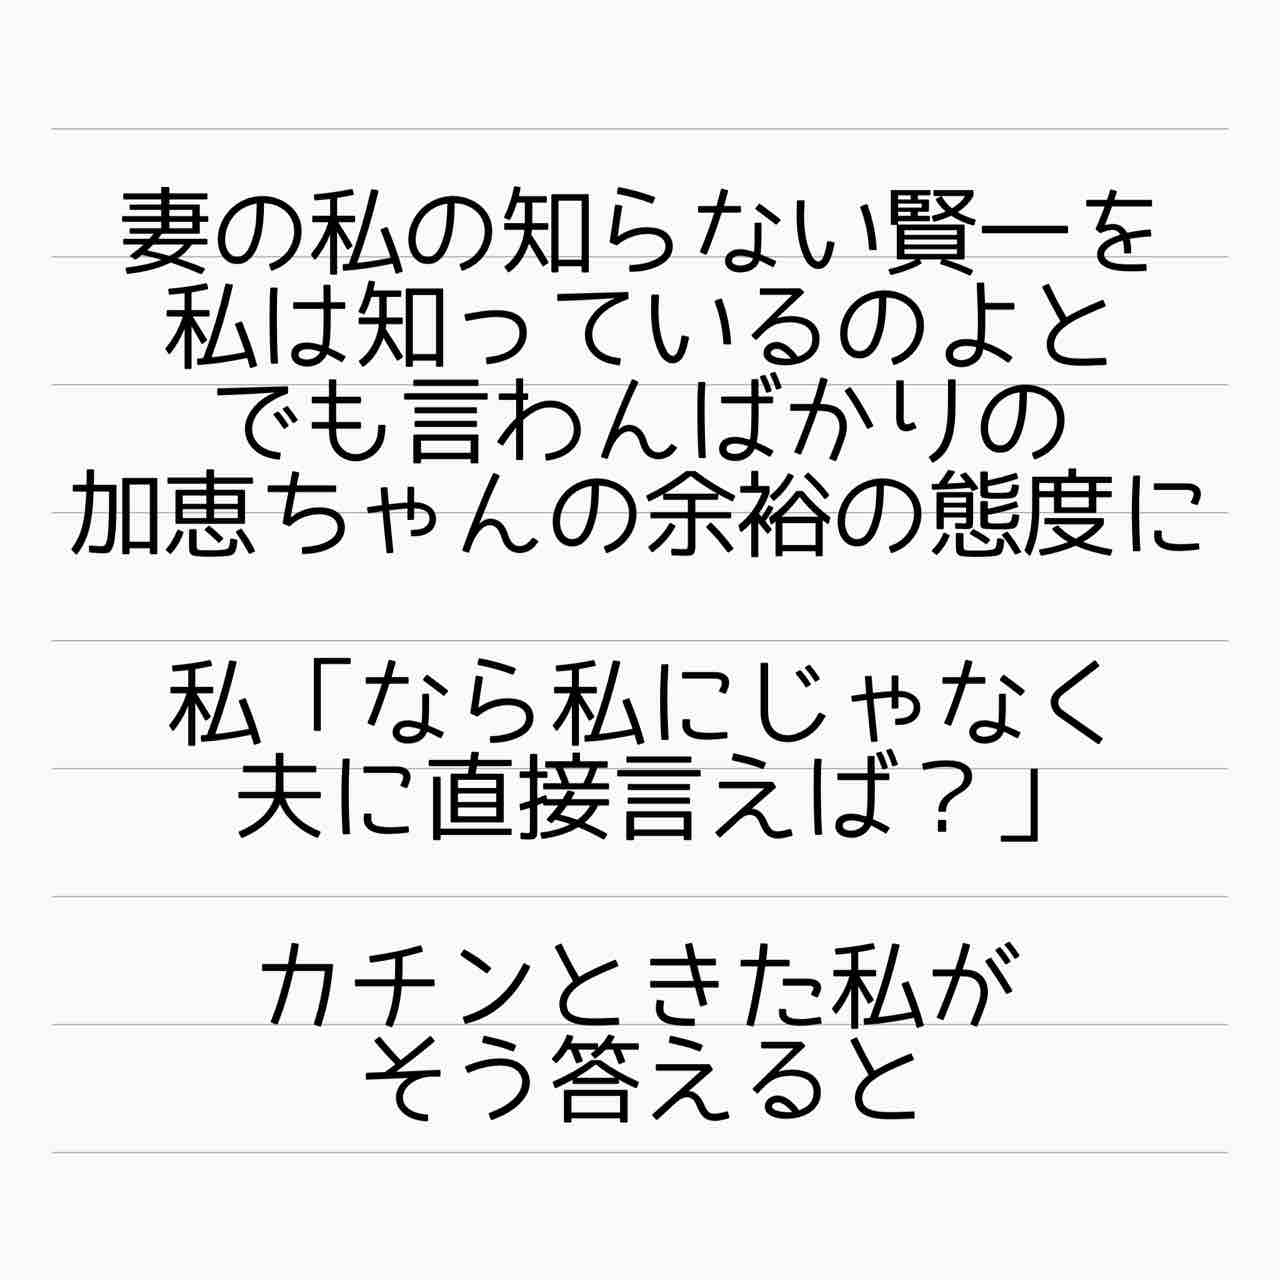 妻の私の知らない賢一を
私は知っているのよと
でも言わんばかりの
加恵ちゃんの余裕の態度に
私「なら私にじゃなく
夫に直接言えば？」
カチンときた私が
そう答えると